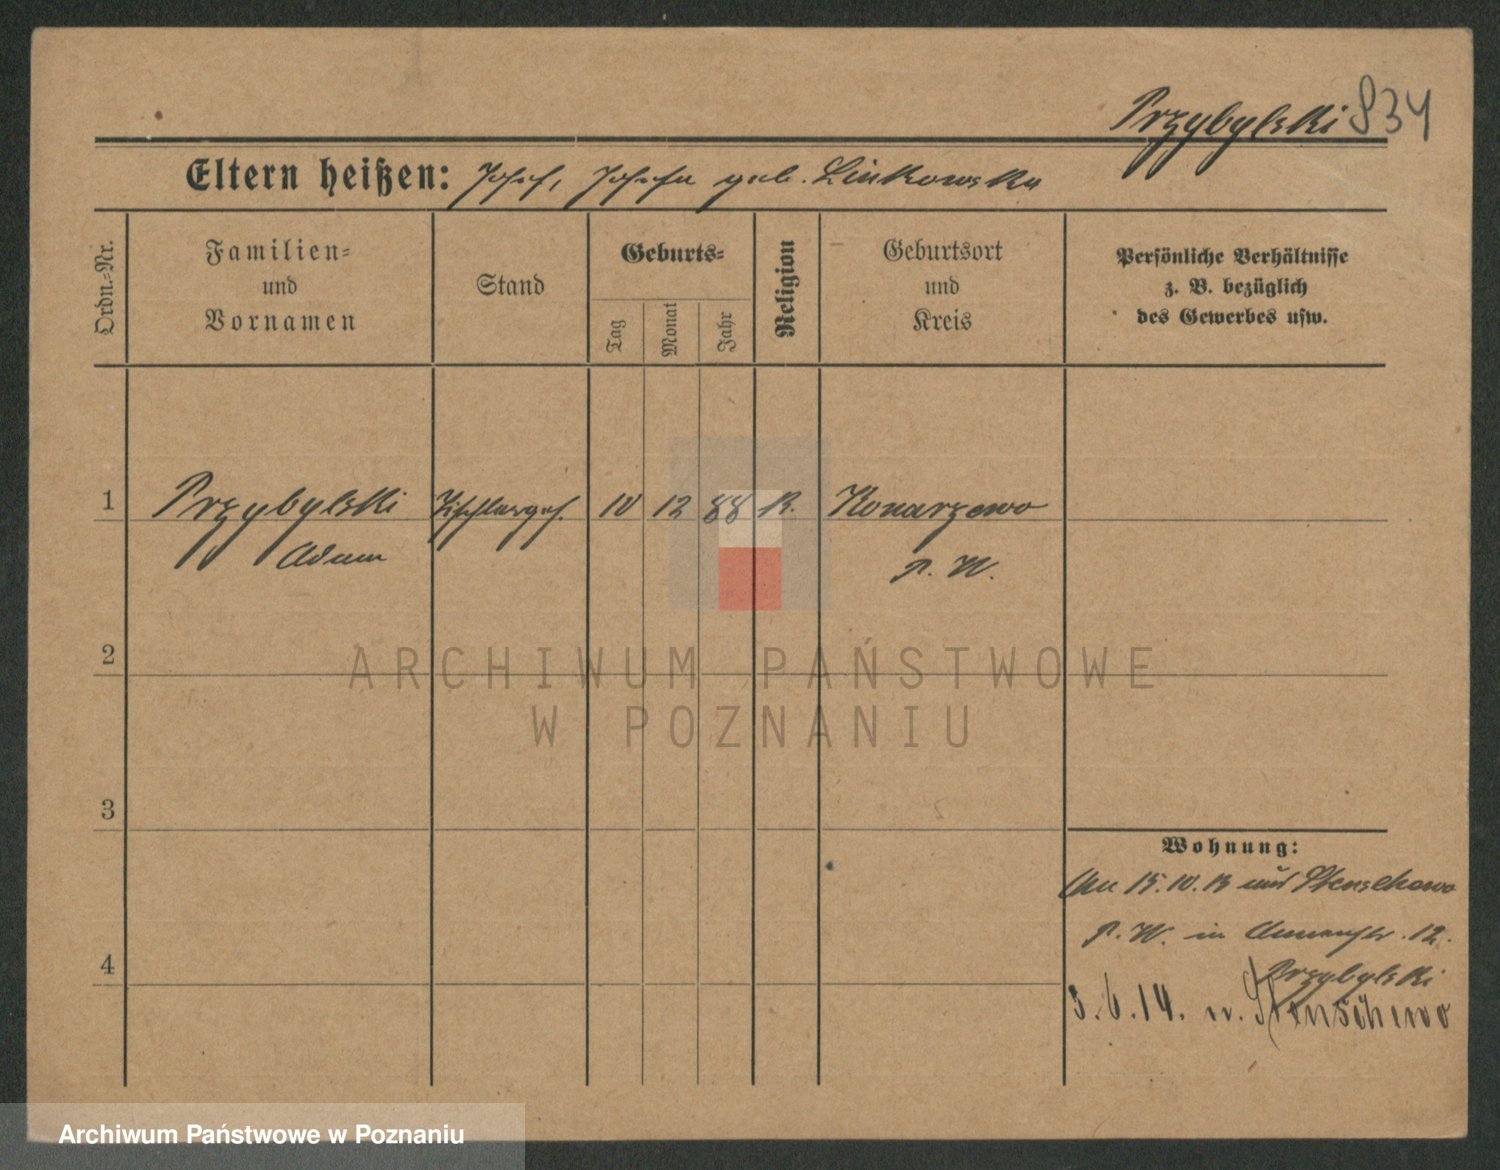 Przybylski 834
Eltern heißen: Josef, Josefa geb. Linkowska
Ordn.-Nr.
Familien-
und
Vornamen
Stand
Geburts-
Tag
Monat
Jahr
Religion
Geburtsort
und
Kreis
Persönliche Verhältnisse
z. B. bezüglich
des Gewerbes usw.
1 Przybylski Tischlerges. 10 12 88 K. Konarzewo
Adam P. W.
2
ARCHIWUM PAŃSTWOWE
W POZNANIU
3
Wohnung:
15.10.13 Stenschewo
4
P. W. in 12.
Przybylski
3.6.14. n. Stenschewo
Archiwum Państwowe w Poznaniu